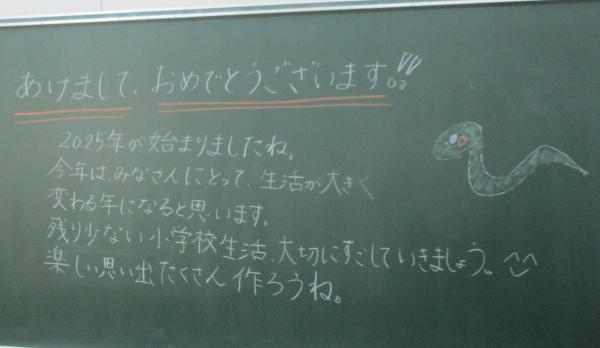 あけまして、おめでとうございます!!
2025年が始まりましたね。
今年は、みなさんにとって、生活が大きく
変わる年になると思います。
残り少ない小学校生活、大切にすごしていきましょう。^^
楽しい思い出たくさん作ろうね。